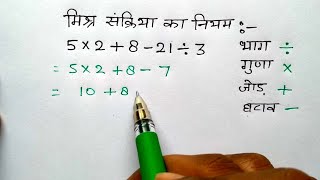 मिश्र संक्रिया का नियम :-
5×2+8-21÷3
= 5×2+8-7
= 10+8
भाग ÷
गुणा ×
जोड़ +
घटाव -